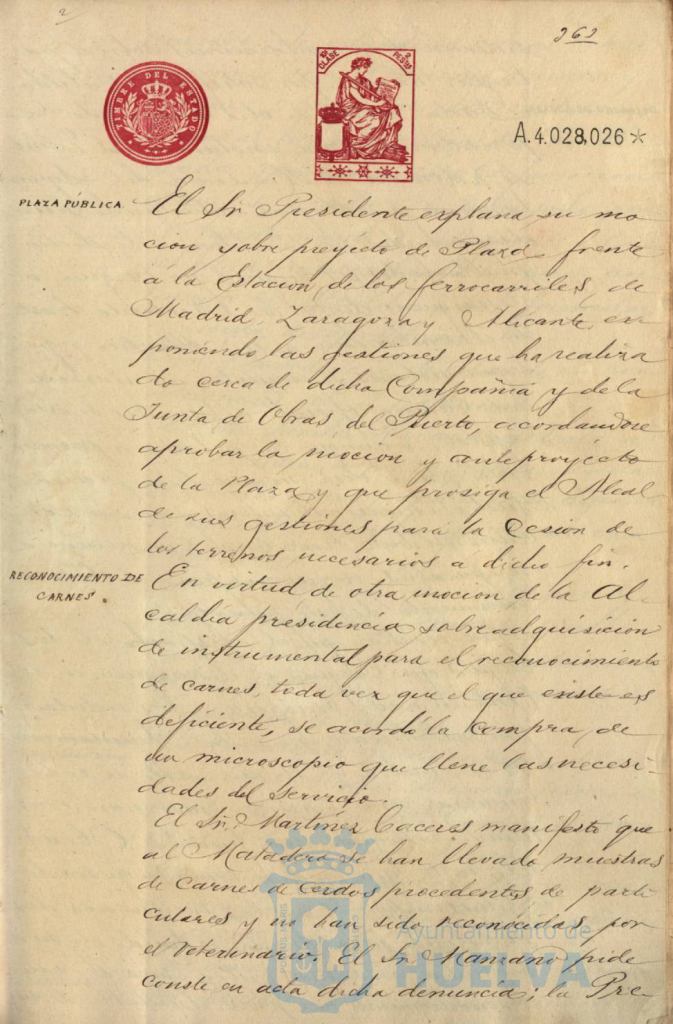 2
262
TIMBRE DEL ESTADO
CLASE 2 PESETAS
A.4.028,026*
PLAZA PÚBLICA
El Sr. Presidente explana su mo
cion sobre proyecto de Plaza frente
á la Estacion de los ferrocarriles, de
Madrid, Zaragoza y Alicante, ex
poniendo las gestiones que ha realiza
do cerca de dicha Compañia y de la
Junta de Obras del Puerto, acordandose
aprobar la mocion y anteproyecto
de la Plaza y que prosiga el Alcal
de sus gestiones para la Cesion de
los terrenos necesarios a dicho fin.
RECONOCIMIENTO DE
CARNES.
En virtud de otra mocion de la Al-
caldia presidencia sobre adquisición
de instrumental para el reconocimiento
de carnes, toda vez que el que existe es
deficiente, se acordó la compra, de
un microscopio que llene las necesi-
dades del servicio.
El Sr. Martinez Caceres manifestó que
al Matadero se han llevado muestras
de carnes de cerdos procedentes de parti
culares y no han sido reconocidas, por
el Veterinario. El Sr. Manzano pide
conste en acta dicha denuncia; la Pre-
Ayuntamiento de
HUELVA